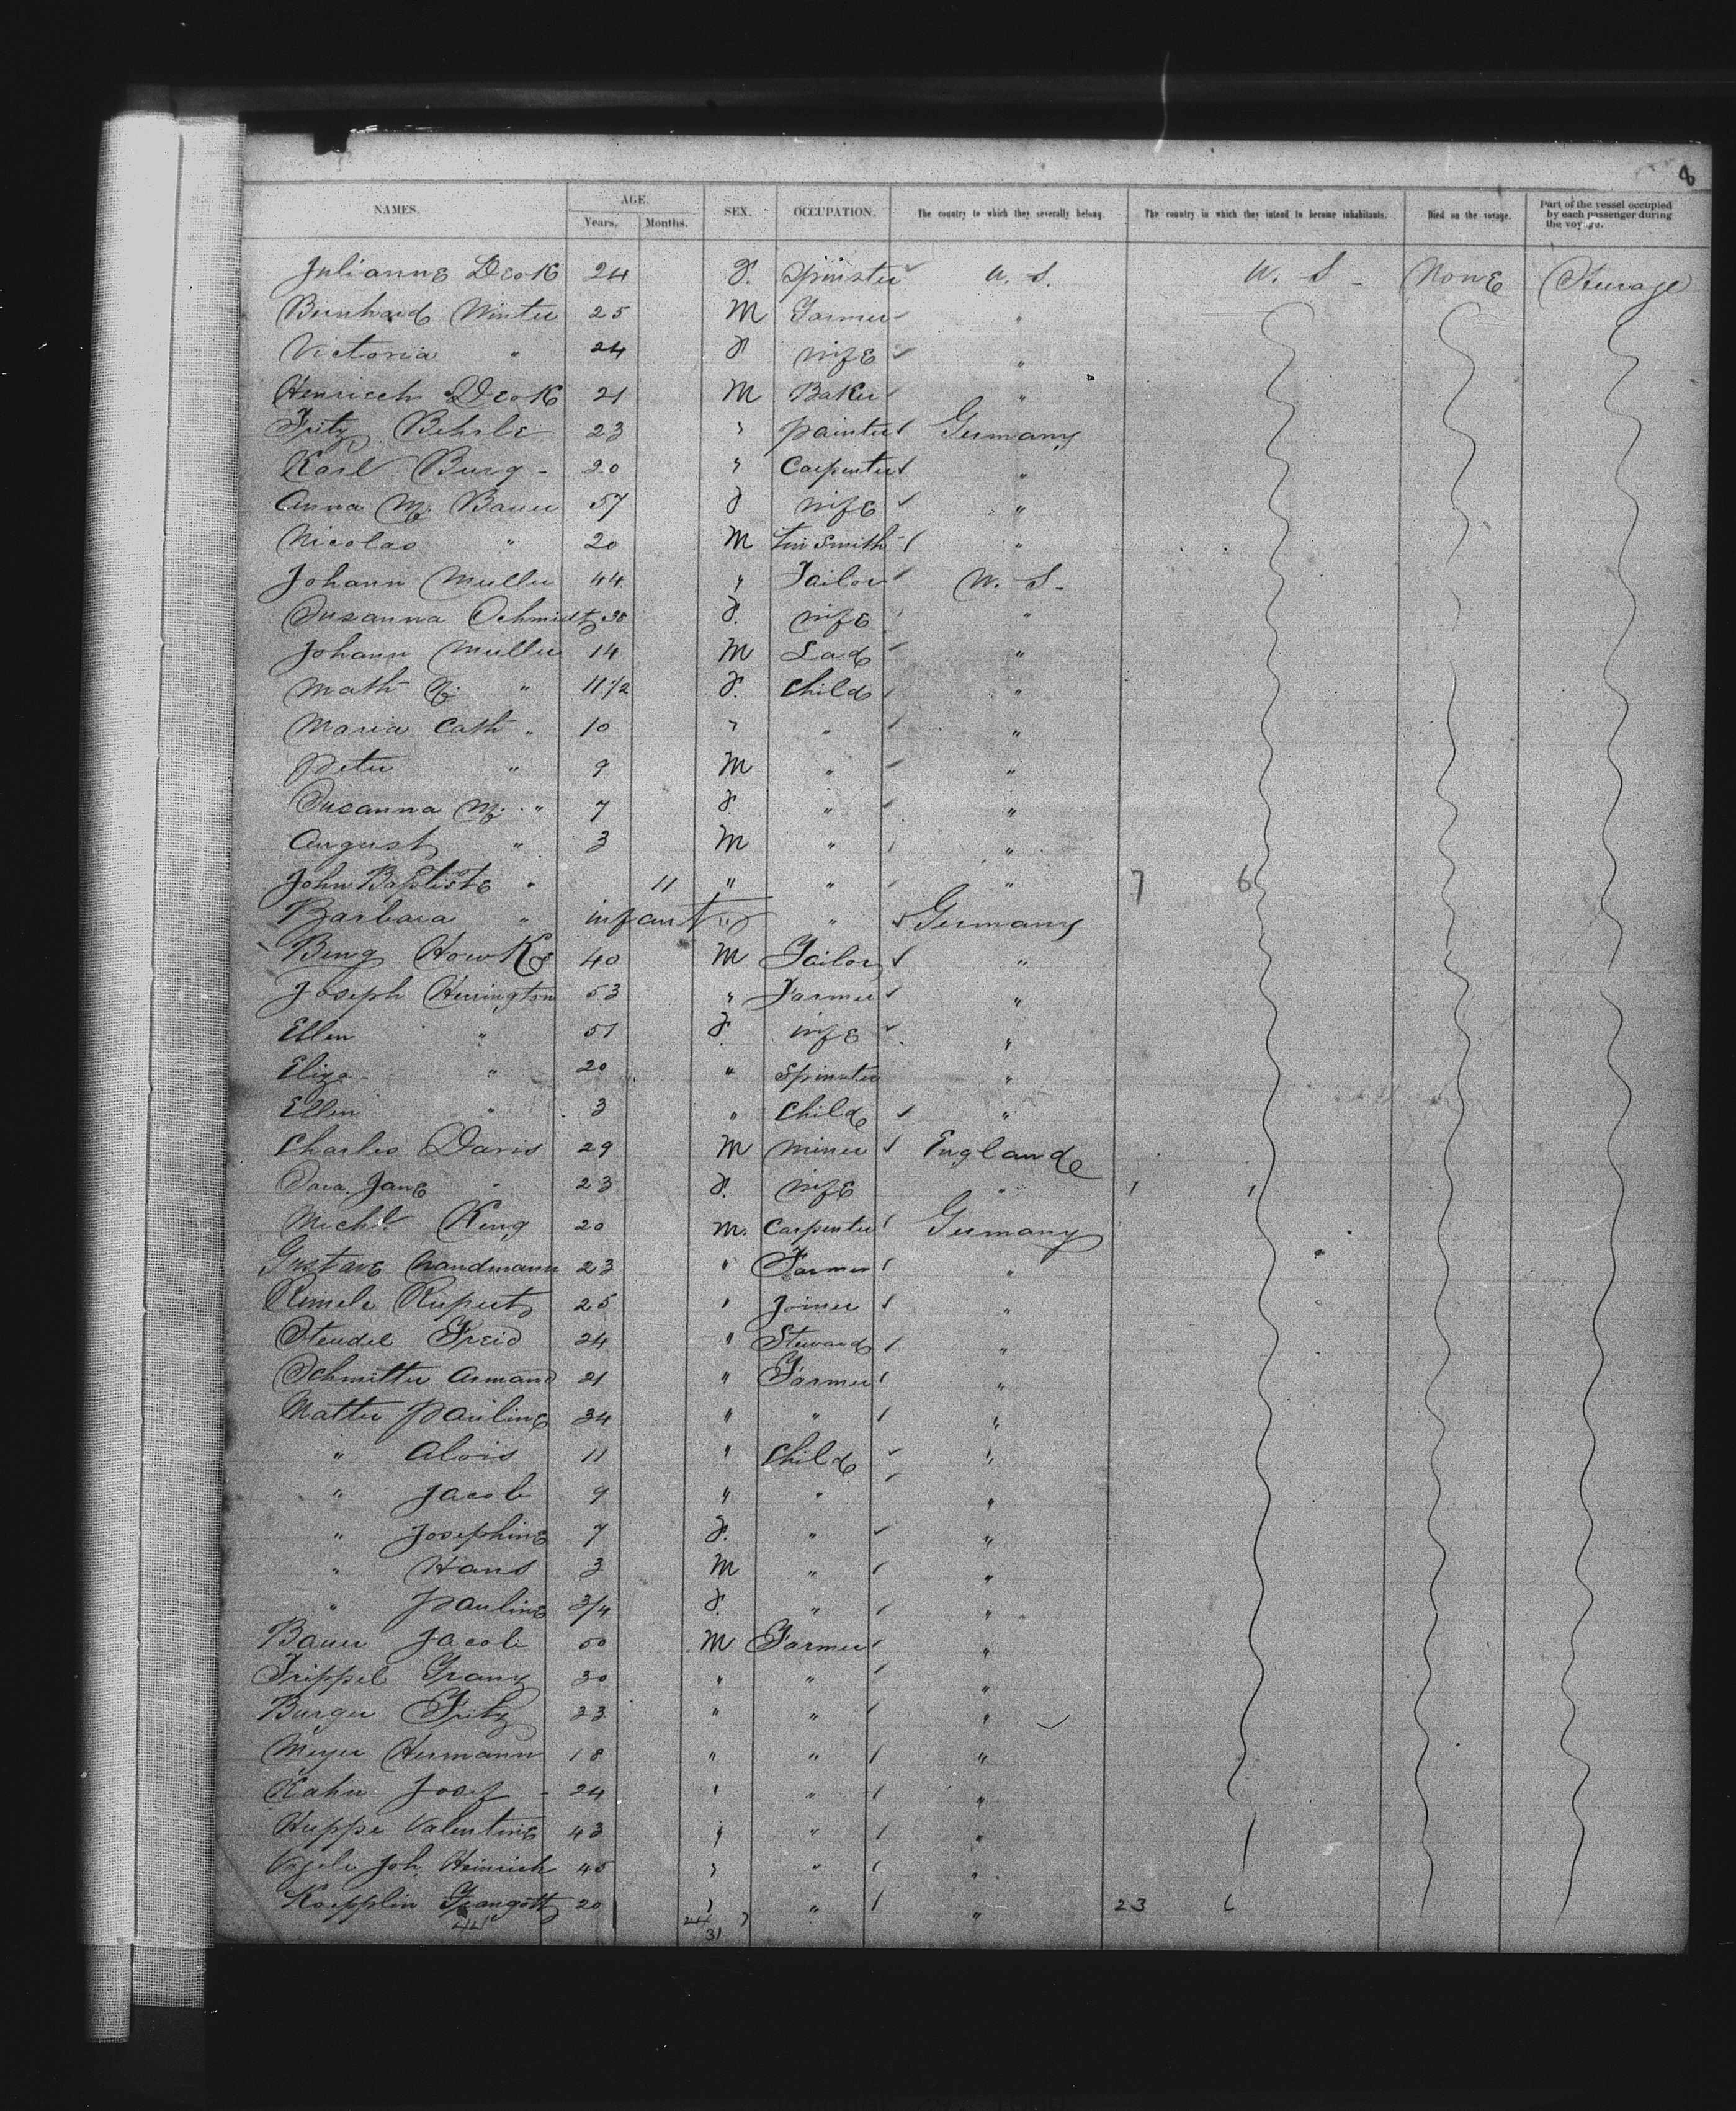 8
NAMES. AGE. SEX. OCCUPATION. The country to which they severally belong. The country in which they intend to become inhabitants. Died on the voyage. Part of the vessel occupied by each passenger during the voyage.
Years. Months.
Julianne 24 F. Spinster U. S. U. S None Steerage
Bernhard Winter 25 M Farmer "
Victoria " 24 F Wife "
Henriech 21 M Baker "
Fritz Behrle 23 " painter Germany
Karl Burg 20 " Carpenter "
Anna M. Bauer 57 F Wife "
Nicolas " 20 M Tin Smith "
Johann Muller 44 " Tailor U. S.
Susanna Schmidt 38 F. Wife "
Johann Muller 14 M Lad "
Math " 11 1/2 F. Child "
Maria Cath " 10 " " "
Peter " 9 M " "
Susanna M. " 7 F " "
August " 3 M " "
John Baptiste " 11 " " " 7 6
Barbara " infant " " Germany
40 M Tailor "
Joseph Herrington 53 " Farmer "
Ellen " 51 F. Wife "
Eliza " 20 " Spinster "
Ellen " 3 " Child "
Charles Davis 29 M Miner England
Sara Jane " 23 F. Wife " 1 1
Michl King 20 M. Carpenter Germany
Gustave 23 " Farmer "
Rupert 25 " Joiner "
Steudel 24 " Steward "
Schmitter Armand 21 " Farmer "
Matter Pauline 34 " " "
" Alois 11 " Child "
" Jacob 9 " " "
" Josephine 7 F. " "
" Hans 3 M " "
" Pauline 3/4 F. " "
Bauer Jacob M Farmer "
Trippel Franz 30 " " "
Burger Fritz 23 " " "
Meyer Hermann 18 " " "
Kahn Josef 24 " " "
Huppe Valentine 43 " " "
Joh. Heinrich 45 " " "
Koepplin 20 " " " 23 6
44 31